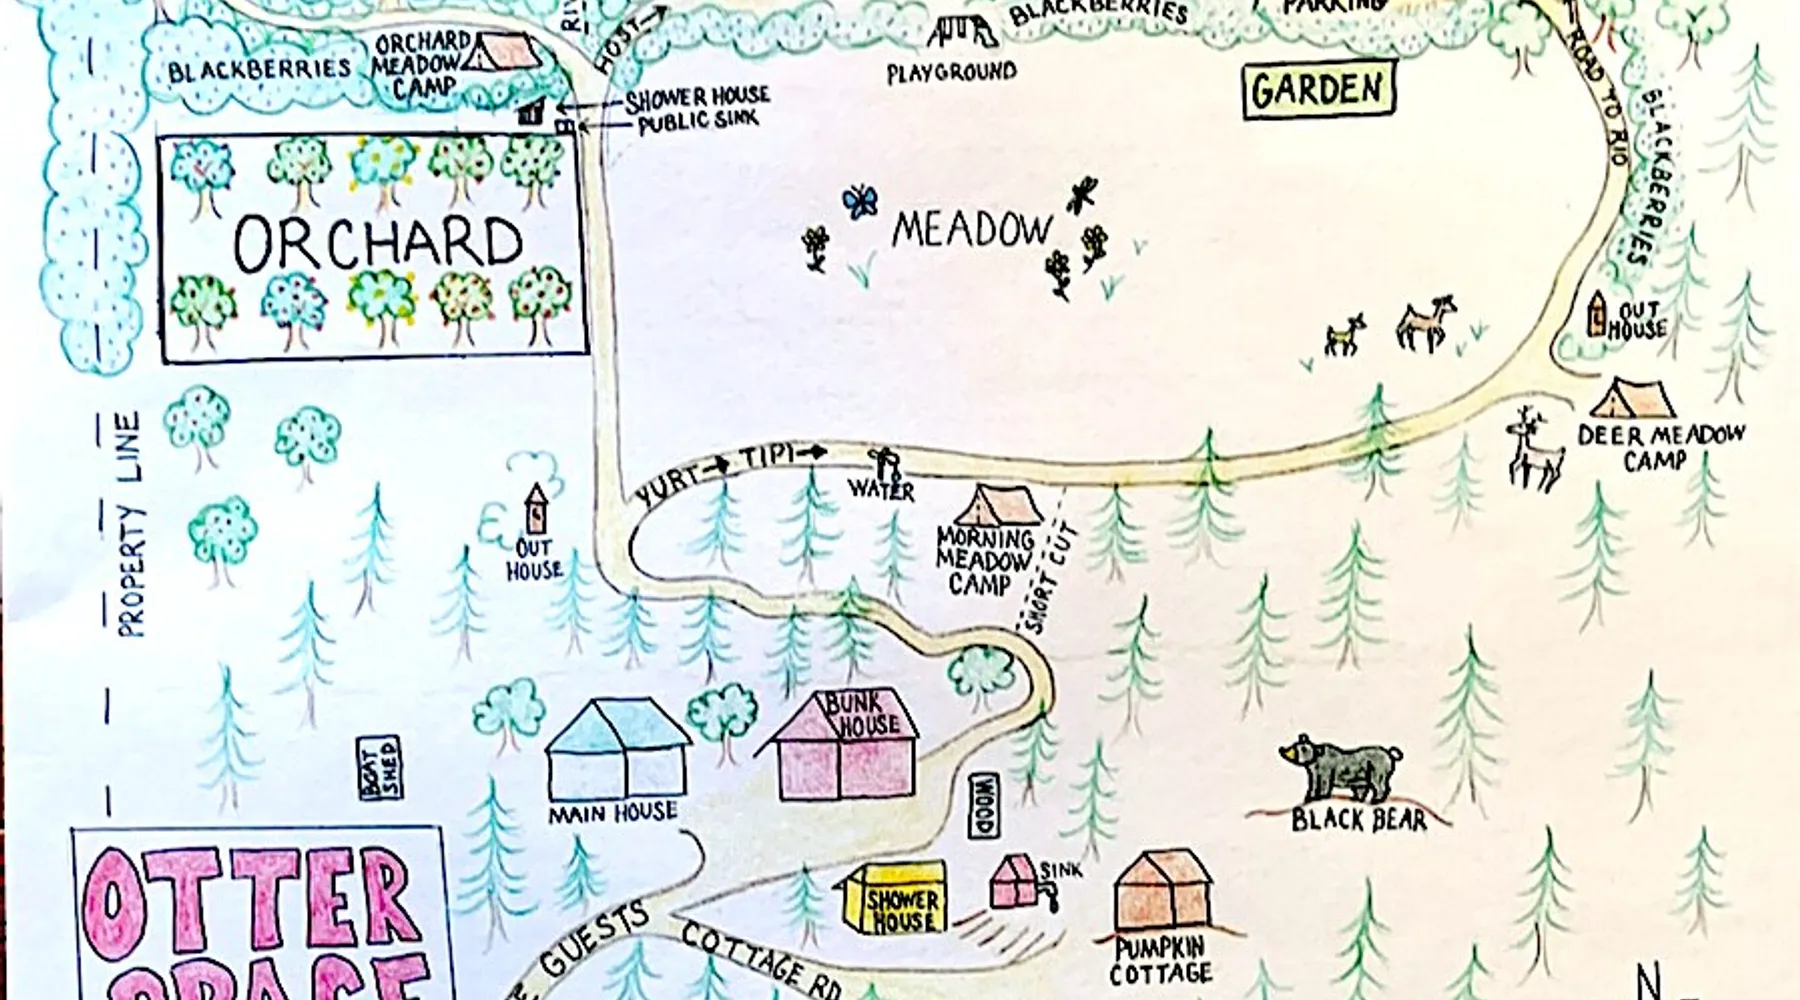 HOST
BLACKBERRIES
PARKING
ORCHARD
MEADOW
CAMP
BLACKBERRIES
PLAYGROUND
GARDEN
ROAD TO RIO
SHOWER HOUSE
PUBLIC SINK
BLACKBERRIES
ORCHARD
MEADOW
OUT
HOUSE
DEER MEADOW
CAMP
PROPERTY LINE
YURT
TIPI
WATER
OUT
HOUSE
MORNING
MEADOW
CAMP
SHORT CUT
BUNK
HOUSE
BOAT
SHED
MAIN HOUSE
WOOD
BLACK BEAR
OTTER
SPACE
SHOWER
HOUSE
SINK
PUMPKIN
COTTAGE
GUESTS
COTTAGE RD
N